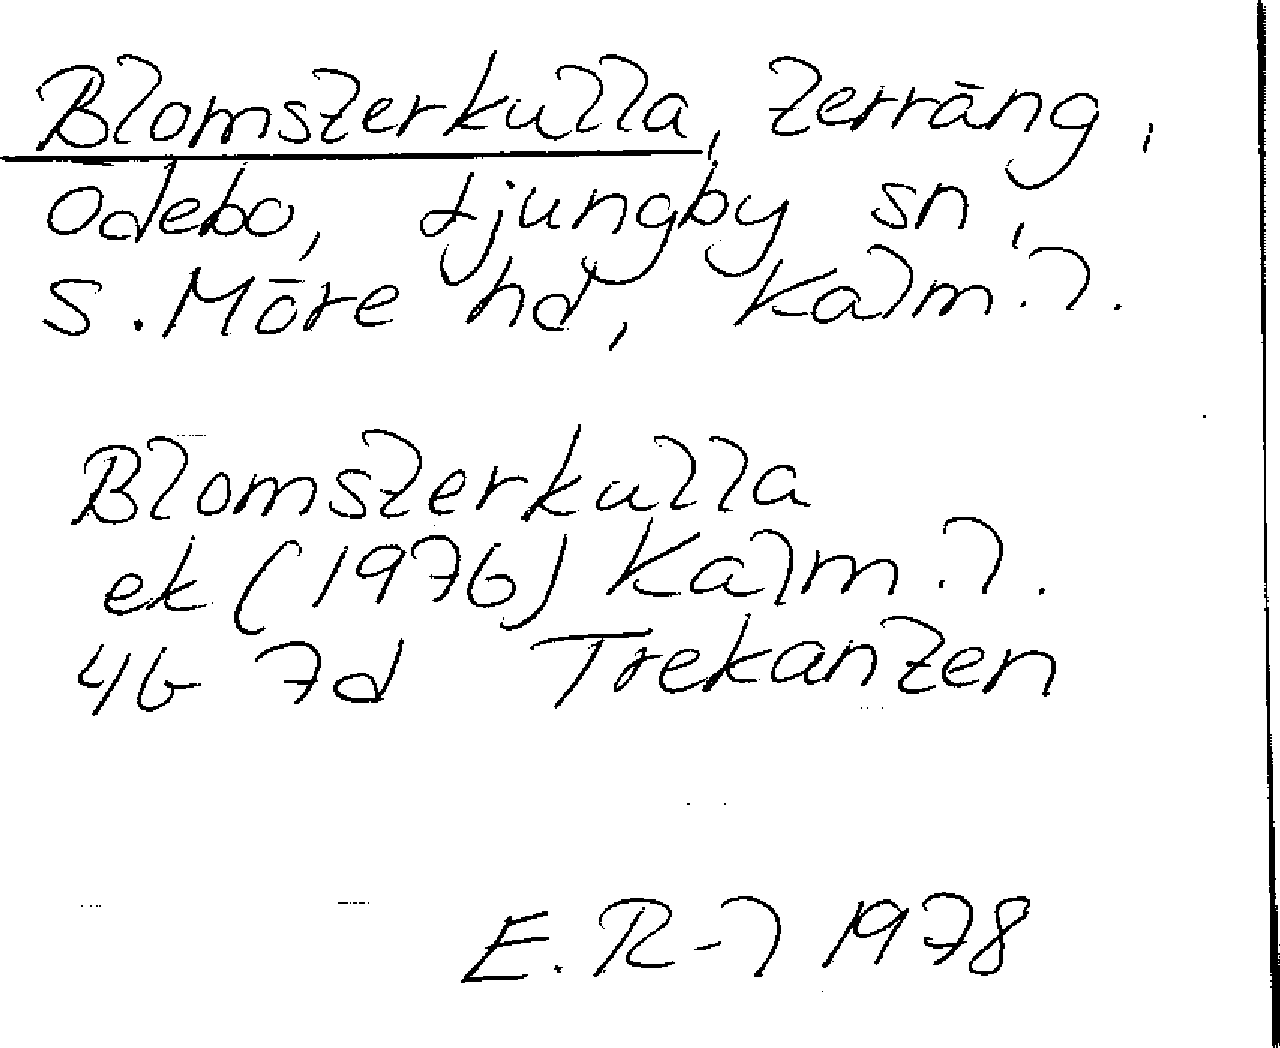 Blomsterkulla, terräng,
Ödebo, Ljungby sn,
S. Möre hd, Kalm. l.
Blomsterkulla
ek (1976) Kalm. l.
4G 7d Trekanten
E. R-l 1978